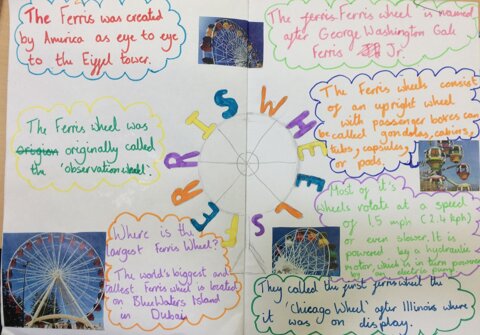 The Ferris was created
by America as eye to eye
to the Eiffel tower.
The ferris Ferris wheel is named
after George Washington Gale
Ferris Jr.
The Ferris wheels consists
of an upright wheel
with passenger boxes can
be called gondolas, cabins,
tubs, capsules,
or pods.
The Ferris wheel was
origion originally called
the 'observation wheel'.
FERRIS WHEELS
Most of it's
wheels rotate at a speed
of 1.5 mph (2.4 kph)
or even slower. It is
powered by a hydraulic
motor, which is in turn powered
by electric pump
Where is the
largest Ferris Wheel?
The world's biggest and
tallest Ferris wheel is located
on BlueWaters Island
in Dubai
They called the first ferris wheel the
'Chicago Wheel' after Illinois where
it was on display.